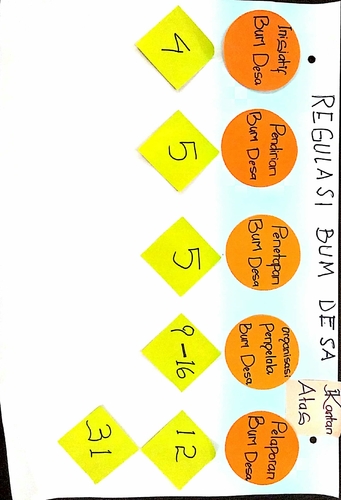 REGULASI BUM DESA
Kantan
Atas
Inisiatif
BUM Desa
Pendirian
BUM Desa
Penetapan
BUM Desa
Organisasi
Pengelola
BUM Desa
Pelaporan
BUM Desa
4
5
5
9-16
12
31